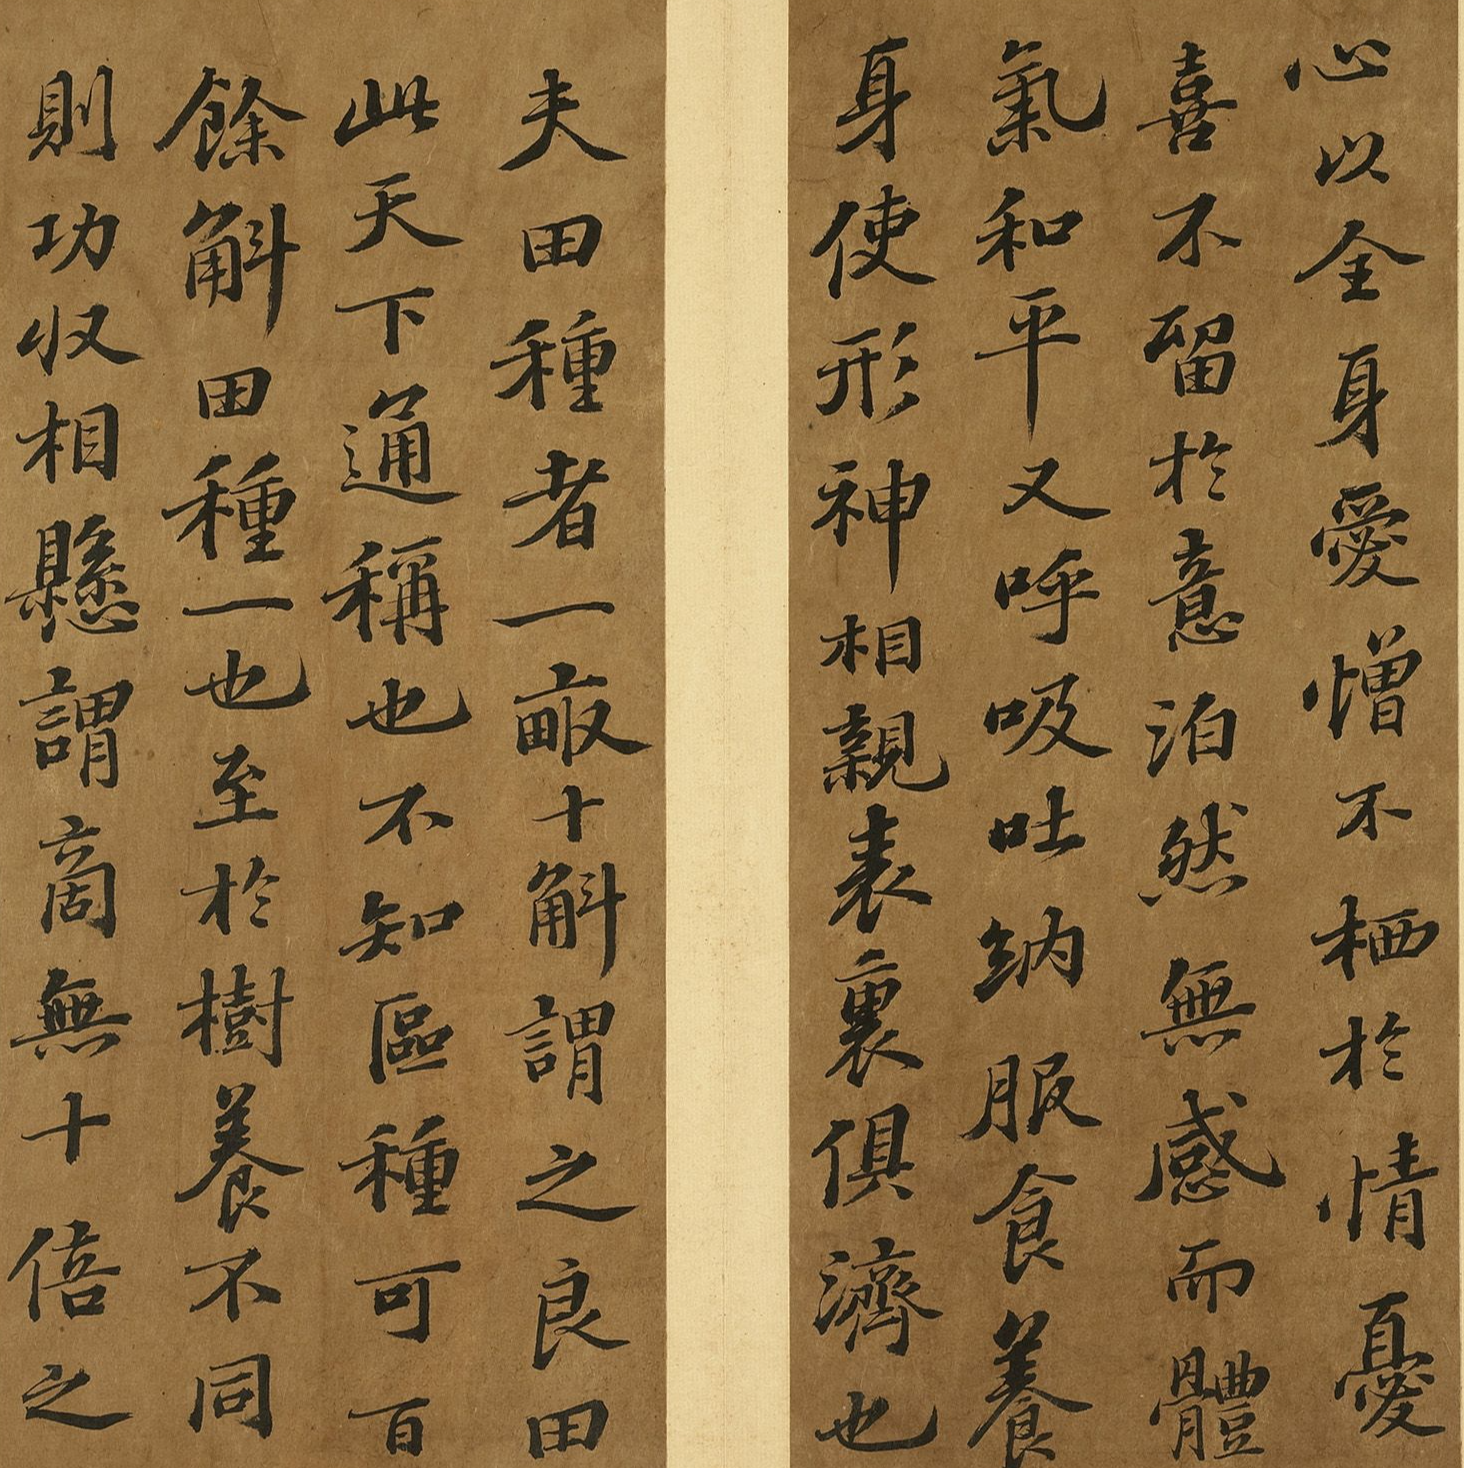 心以全身愛憎不栖於情憂
喜不留於意泊然無感而體
氣和平又呼吸吐納服食養
身使形神相親表裏俱濟也
夫田種者一畝十斛謂之良田
此天下通稱也不知區種可百
餘斛田種一也至於樹養不同
則功收相懸謂商無十倍之